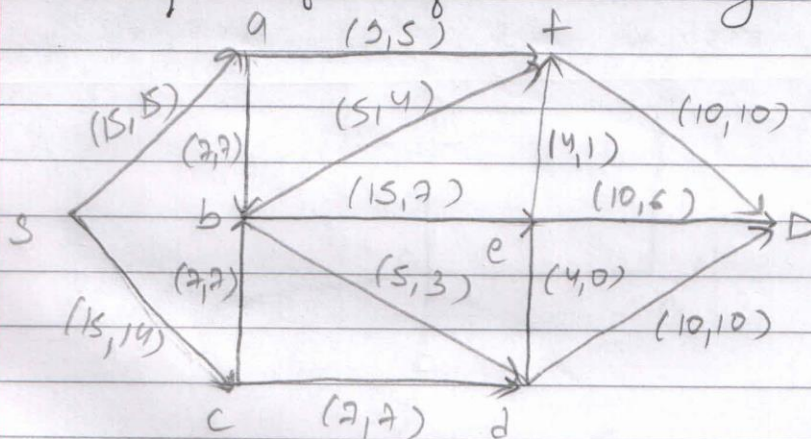 a (5,5) f
(15,15) (5,4) (10,10)
(7,7) (4,1)
(15,7) (10,6)
s b e D
(7,7) (5,3) (4,0)
(15,14) (10,10)
c (7,7) d